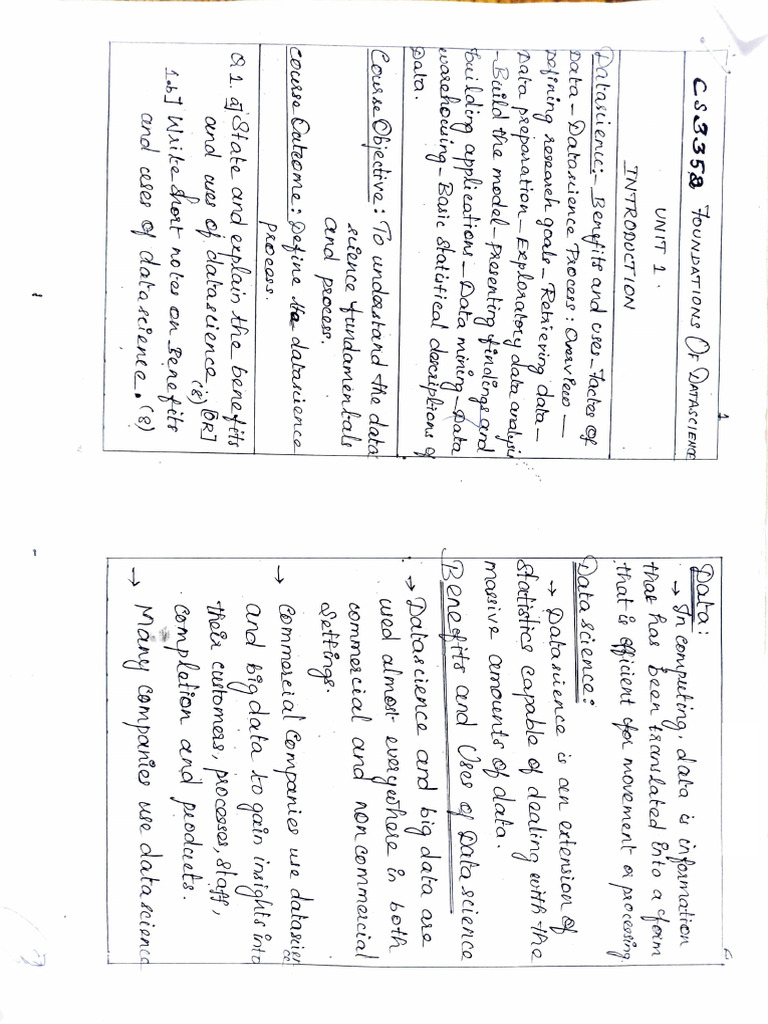 1
CS3352 FOUNDATIONS OF DATASCIENCE
UNIT 1.
INTRODUCTION
Datascience:- Benefits and uses-Factes of
Data-Datascience Process: Overview -
Defining research goals-Retrieving data-
Data preparation-Exploratory data analysis
-Build the model-presenting findings and
building applications-Data mining-Data
warehousing-Basic statistical descriptions of
Data.
Course Objective: To understand the data
science fundamentals
and process.
Course Outcome: Define the datascience
process.
Q1. a] State and explain the benefits
and uses of datascience. (8) [OR]
1.b] Write short notes on Benefits
and uses of datascience. (8)
2
Data:
→ In computing, data is information
that has been translated into a form
that is efficient for movement or processing.
Datascience:
→ Datascience is an extension of
statistics capable of dealing with the
massive amounts of data.
Benefits and Uses of Datascience
→ Datascience and big data are
used almost everywhere in both
commercial and noncommercial
settings.
→ Commercial companies use datascien
ce
and big data to gain insights into
their customers, processes, staff,
completion and products.
→ Many companies use datascience